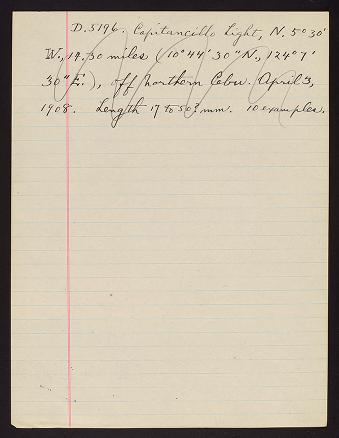 D.5196. Capitancillo Light, N. 5° 30'
W., 14.30 miles (10° 44' 30" N., 124° 7'
30" E.), off northern Cebu. April 3,
1908. Length 17 to 50? mm. 10 examples.